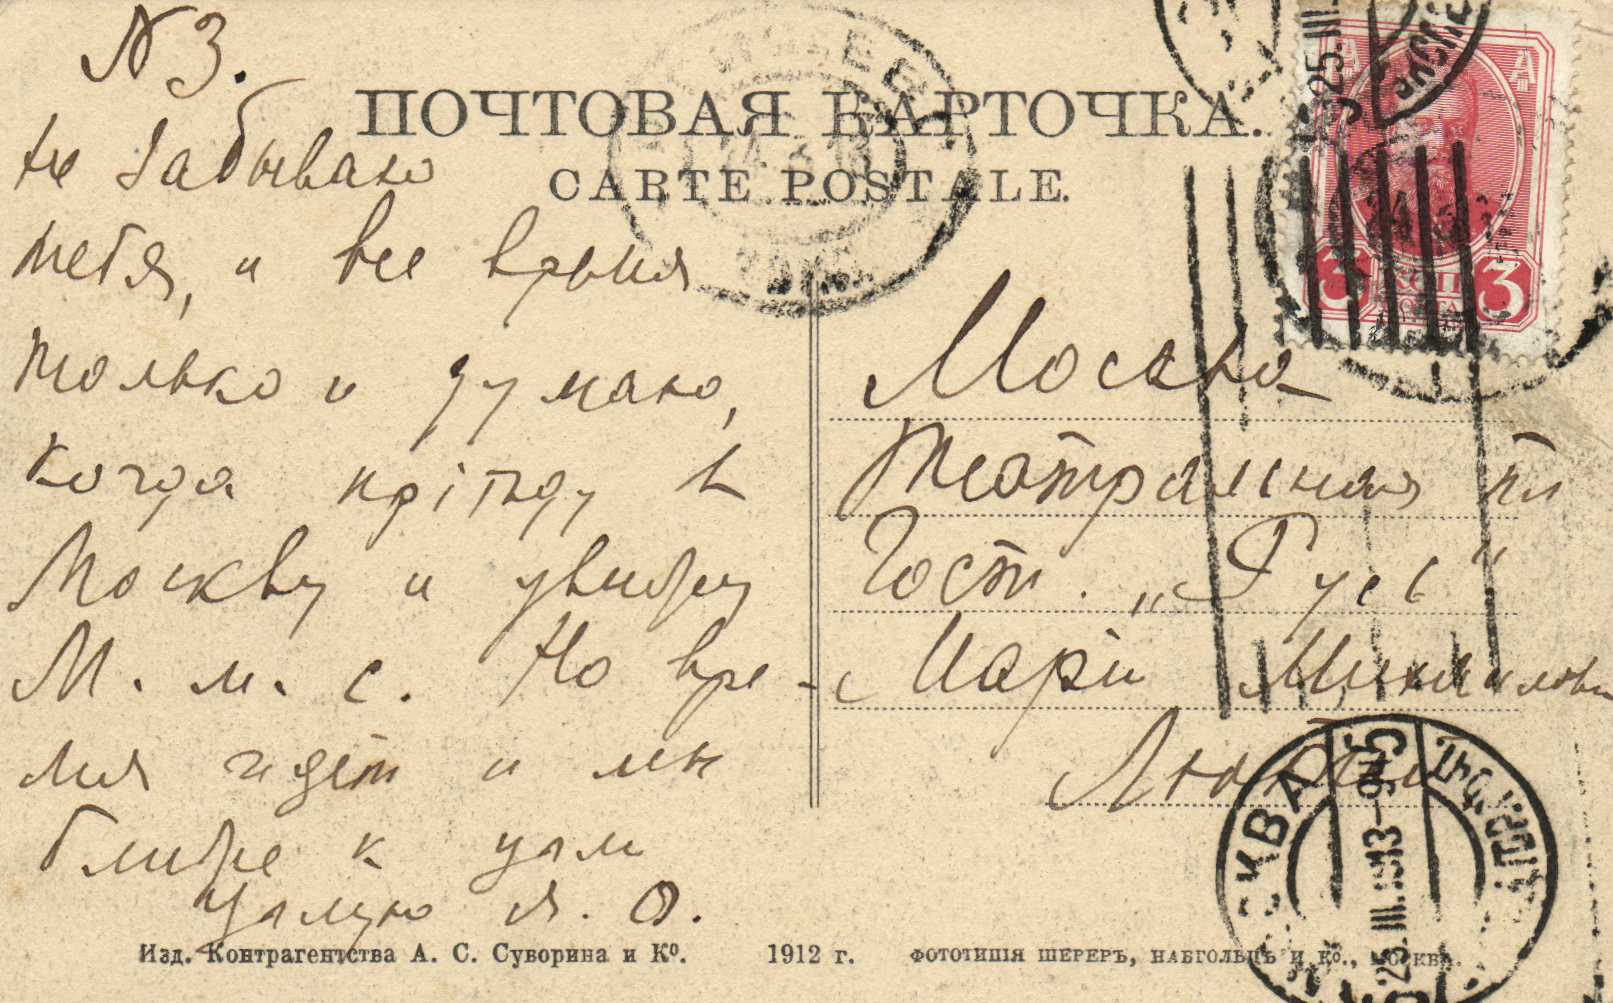 N 3.
ПОЧТОВАЯ КАРТОЧКА.
CARTE POSTALE.
Не забываю
тебя, и все время
только и думаю,
когда пріѣду в
Москву и увижу
М. м. с. Но вре-
мя идет и мы
ближе к цели
Целую Я. О.
Москва
Театральная пл
Гост. „Русь“
Маріи Михайловн
3 КОП 3
МОСКВА
25.III.1913
Изд. Контрагентства А. С. Суворина и Ко.
1912 г.
ФОТОТИПІЯ ШЕРЕРЪ, НАБГОЛЬЦЪ И Ко., МОСКВА.